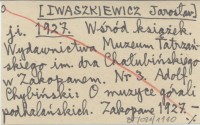 [IWASZKIEWICZ Jarosław]
ji. 1927. Wśród książek.
Wydawnictwa Muzeum Tatrzań-
skiego im. dra Chałubińskiego
w Zakopanem. Nr 3. Adolf
Chybiński: O muzyce górali
podhalańskich. Zakopane 1927 -